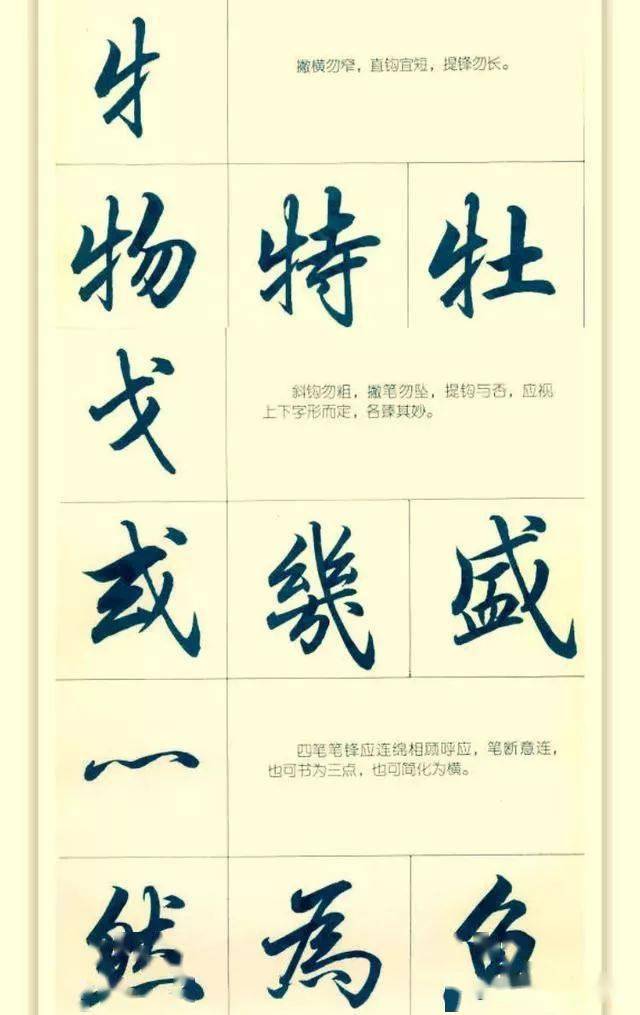 牜
撇横勿窄，直钩宜短，提锋勿长。
物 特 牡
戈
斜钩勿粗，撇笔勿坠，提钩与否，应视
上下字形而定，各臻其妙。
或 幾 盛
灬
四笔笔锋应连绵相顾呼应，笔断意连，
也可书为三点，也可简化为横。
然 為 魚